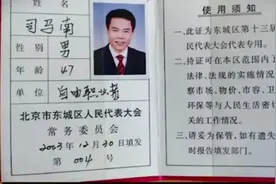 姓名 司马南
性别 男
年龄 47
单位 自由职业者
北京市东城区人民代表大会
常务委员会
2003年12月30日填发
第004号
使用须知
一、此证为东城区第十三届
民代表大会代表专用。
二、持证可在本区范围内了
法律、法规的实施情况
察市场、物价、市容、卫
环保等与人民生活密切
关的工作情况。
三、请爱为保管,如有遗失
时报告填发部门。